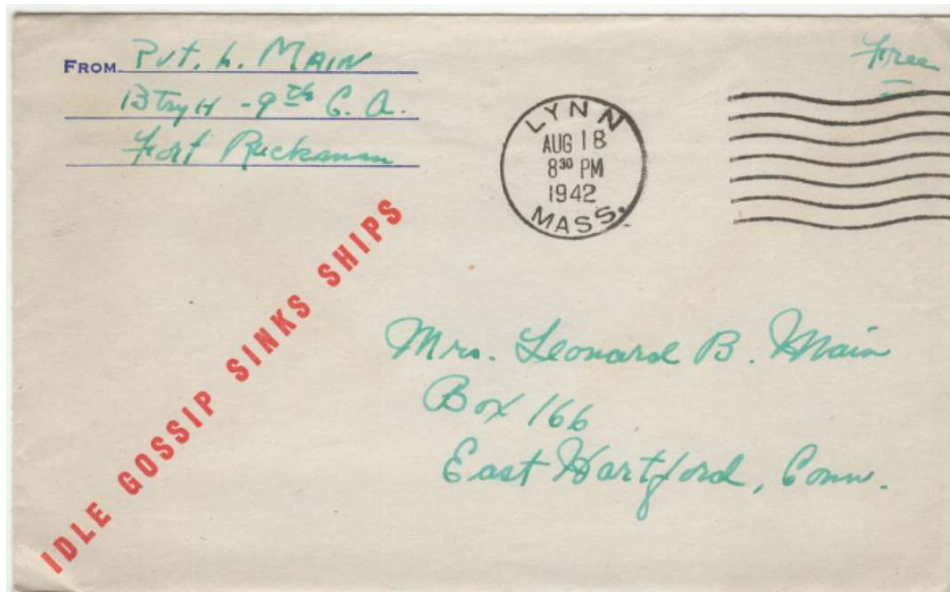 FROM Pvt. L. MAIN
Btry H - 9th C. A.
Fort Ruckman
Free
LYNN
AUG 18
8³⁰ PM
1942
MASS.
IDLE GOSSIP SINKS SHIPS
Mrs. Leonard B. Main
Box 166
East Hartford, Conn.